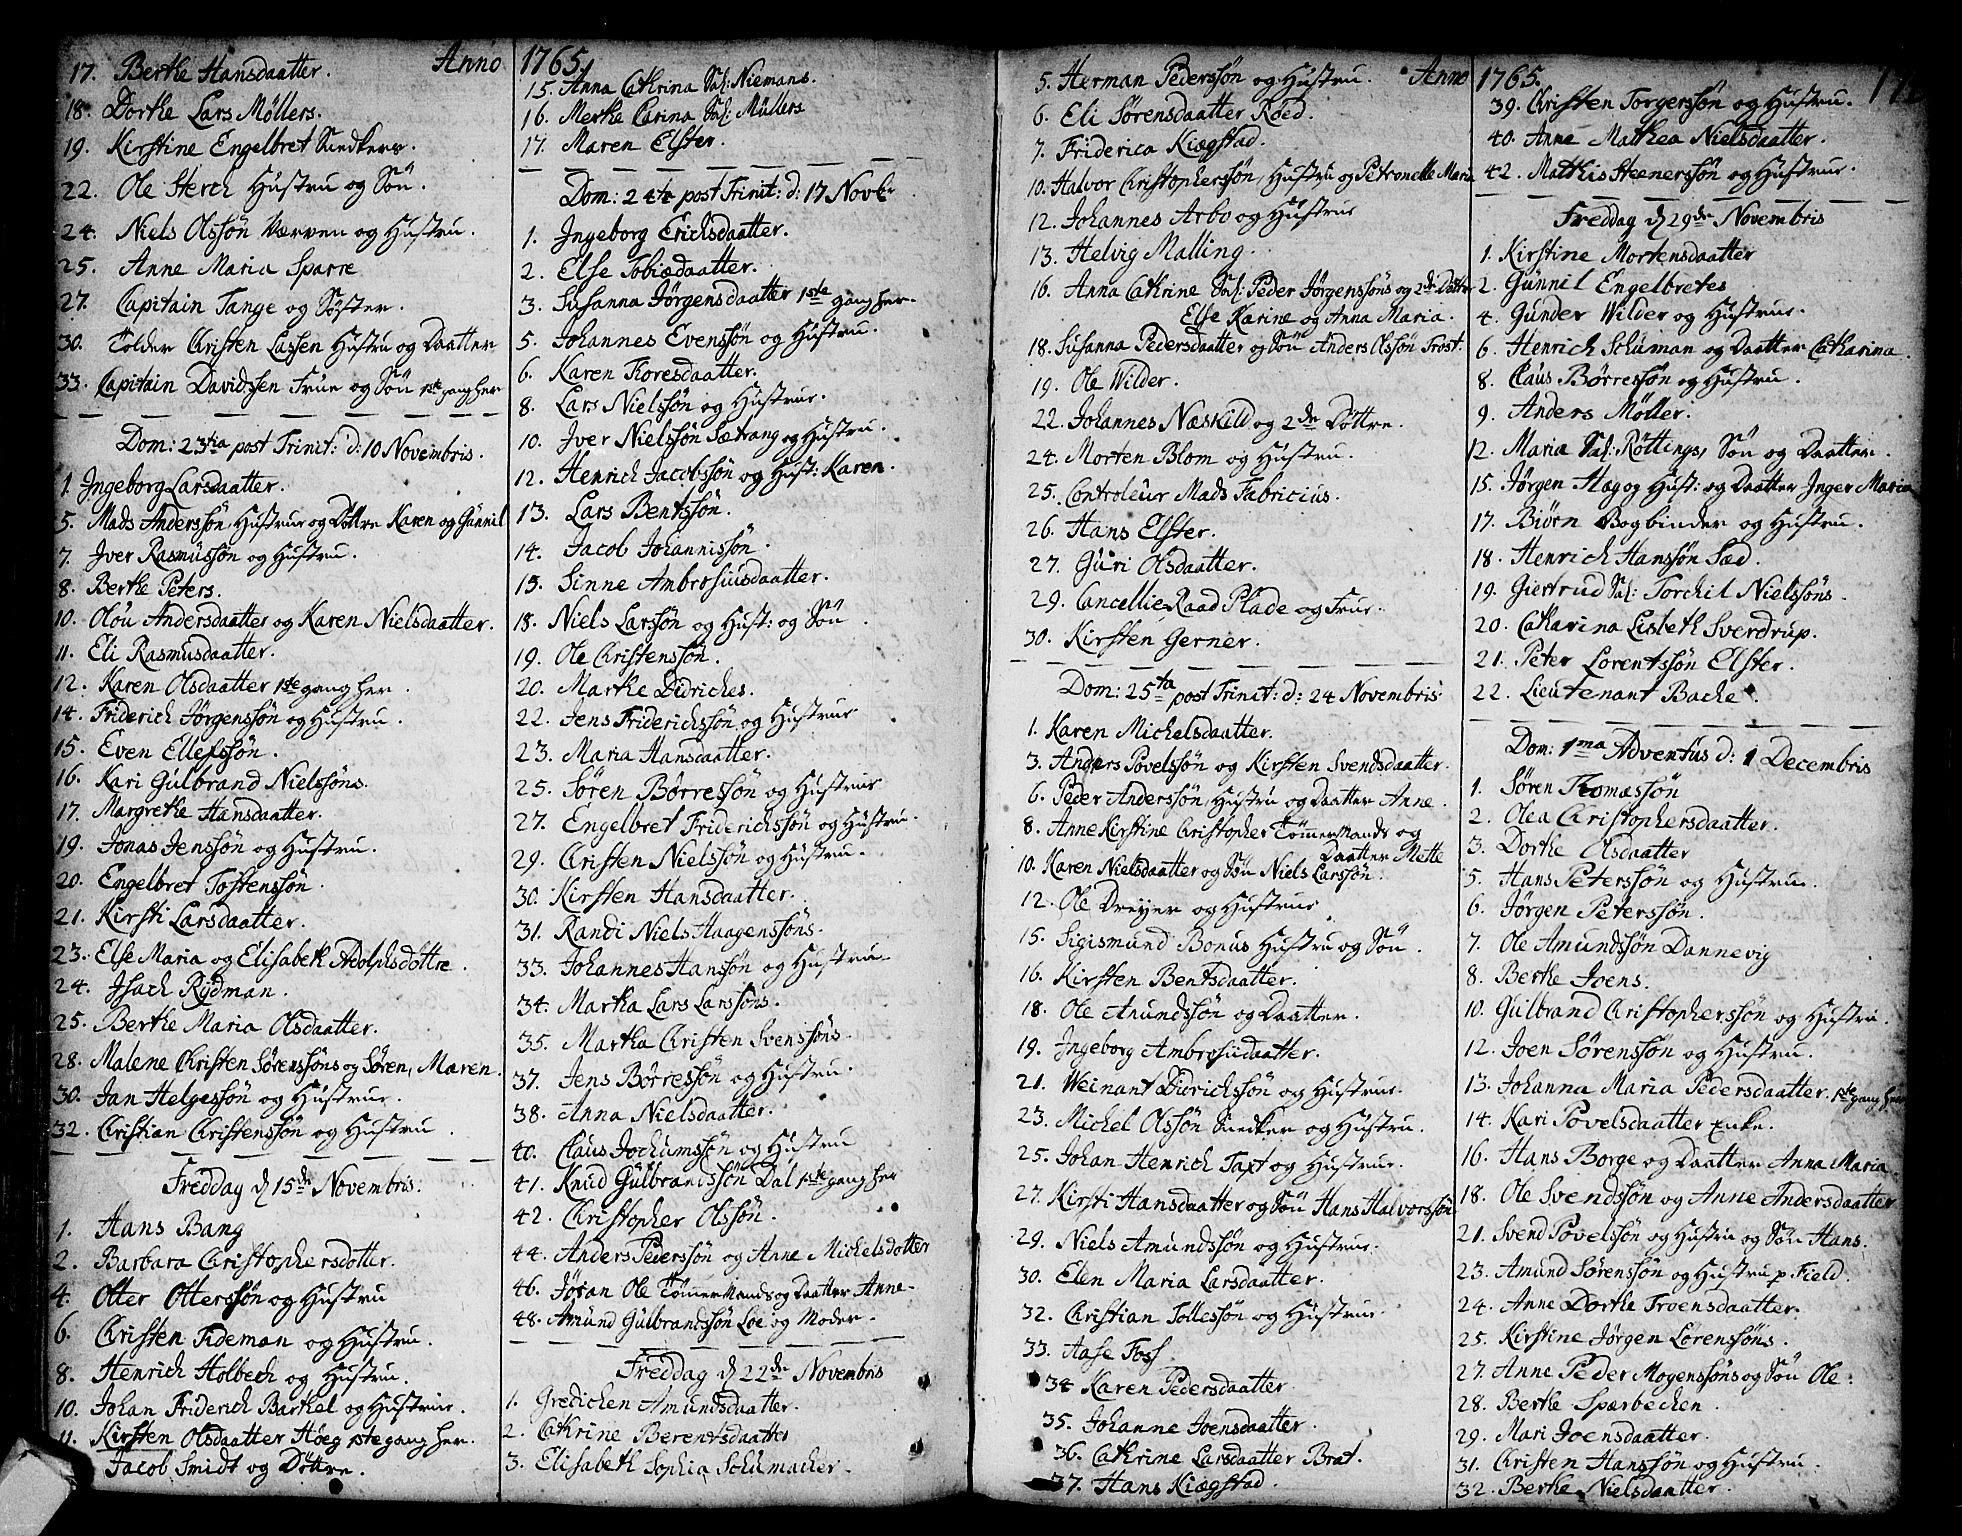 Anno 1765.
17. Berthe Hansdaatter.
18. Dorthe Lars Møllers.
19. Kirstine Engelbret Snedkers.
22. Ole Sterch Hustru og Søn.
24. Niels Olssøn Værven og Hustru.
25. Anne Maria Sparre
27. Capitain Tange og Søster.
30. Tolder Christen Lassen Hustru og Daatter
33. Capitain Davidssen Frue og Søn 1ste gang her
Dom: 23tia post Trinit: d: 10 Novembris.
1. Ingeborg Larsdaatter.
5. Mads Anderssøn, Hustrue og Døttre Karen og Gunnil
7. Iver Rasmussøn og Hustru.
8. Berthe Peters.
10. Olou Andersdaatter og Karen Nielsdaatter.
11. Eli Rasmusdaatter.
12. Karen Olsdaatter 1ste gang her.
14. Friderich Jørgenssøn og Hustru.
15. Even Ellefssøn.
16. Kari Gulbrand Nielssøns.
17. Margrethe Hansdaatter.
19. Jonas Jenssøn og Hustru.
20. Engelbret Tostenssøn.
21. Kirsti Larsdaatter.
23. Else Maria og Elisabeth Adolphsdøttre.
24. Isach Rydman.
25. Berthe Maria Olsdaatter.
28. Malene Christen Sørenssøns og Søren, Maren.
30. Jan Helgessøn og Hustrue.
32. Christian Christenssøn og Hustru.
Freddag d 15de Novembris.
1. Hans Bang
2. Barbara Christophersdotter.
4. Otter Otterssøn og Hustru
6. Christen Tideman og Hustru.
8. Henrich Holbech og Hustru.
10. Johan Friderich Barthel og Hustrue.
11. Kirsten Olsdaatter Høeg 1ste gang her.
Jacob Smidt og Døttre.
15. Anna Cathrina Sal: Niemans.
16. Merthe Carina Sal: Müllers
17. Maren Elster.
Dom: 24ta post Trinit: d: 17 Novbr
1. Ingeborg Erichsdaatter.
2. Else Tobiædaatter.
3. Susanna Jørgensdaatter 1ste gang her.
5. Johannes Evenssøn og Hustru.
6. Karen Toresdaatter.
8. Lars Nielssøn og Hustrue.
10. Iver Nielssøn Sætrang og Hustru.
12. Henrich Jacobssøn og Hust: Karen.
13. Lars Bentssøn.
14. Jacob Johannissøn.
15. Sinne Ambrosiusdaatter.
18. Niels Larssøn og Hust: og Søn
19. Ole Christenssøn.
20. Marthe Didriches.
22. Jens Friderichssøn og Hustrue
23. Maria Hansdaatter.
25. Søren Børressøn og Hustrue
27. Engelbret Friderichssøn og Hustru.
29. Christen Nielssøn og Hustru.
30. Kirsten Hansdaatter.
31. Randi Niels Haagenssøns.
33. Johannes Hanssøn og Hustru
34. Martha Lars Larssøns.
35. Martha Christen Svenssøns.
37. Jens Børressøn og Hustru.
38. Anna Nielsdaatter.
40. Claus Jochumssøn og Hustru
41. Knud Gulbrandssøn Dal 1ste gang her
42. Christopher Olssøn.
44. Anders Pederssøn og Anne Michelsdotter
46. Johan Ole Tømmermands og Daatter Anne.
48. Amund Gulbrandssøn Loe og Moder.
Freddag d 22de Novembris
1. Gredichen Amundsdaatter.
2. Cathrine Berentsdaatter
3. Elisabeth Sophia Schumacher.
Anno 1765.
5. Herman Pederssøn og Hustru.
6. Eli Sørensdaatter Røed.
7. Friderica Kiægstad.
10. Halvor Christopherssøn, Hustru og Petronelle Maria
12. Johannes Arbo og Hustrue
13. Helvig Malling.
16. Anna Cathrine Sal: Peder Jørgenssøns og 2de Døttre
Else Karine og Anna Maria.
18. Susanna Pedersdaatter og Søn Anders Olssøn Frost.
19. Ole Wilder.
22. Johannes Næskild og 2de Døttre.
24. Morten Blom og Hustru.
25. Controleur Mads Fabricius.
26. Hans Elster.
27. Guri Olsdaatter.
29. Cancellie Raad Plade og Frue.
30. Kirsten Gerner.
Dom: 25ta post Trinit: d: 24 Novembris
1. Karen Michelsdaatter.
3. Anders Povelssøn og Kirsten Svendsdaatter.
6. Peder Anderssøn, Hustru og Daatter Anne.
8. Anne Kirstine Christopher Tømmermands og
Daatter Mette
10. Karen Nielsdaatter og Søn Niels Larssøn.
12. Ole Dreyer og Hustrue
15. Sigismund Bonus Hustru og Søn.
16. Kirsten Bentsdaatter.
18. Ole Amundssøn og Daatter.
19. Ingeborg Ambrosiidaatter.
21. Weinant Didrichssøn og Hustrue.
23. Michel Olssøn Snedker og Hustru.
25. Johan Henrich Taxt og Hustrue.
27. Kirsti Hansdaatter og Søn Hans Halvorssøn
29. Niels Amundssøn og Hustrue.
30. Elen Maria Larsdaatter.
32. Christian Tollessøn og Hustrue
33. Aase Foss.
34 Karen Pedersdaatter
35. Johanne Joensdaatter.
36. Cathrine Larsdaatter Brat.
37. Hans Kiægstad.
39. Christen Torgerssøn og Hustru.
40. Anne Mathea Nielsdaatter.
42. Mathis Steenerssøn og Hustrue.
Freddag d 29de Novembris
1. Kirstine Mortensdaatter
2. Gunnil Engelbretes
4. Gunder Wilder og Hustrue.
6. Henrich Schuman og Daatter Catharina.
8. Claus Børressøn og Hustru.
9. Anders Møller.
12. Maria Sal: Røttings, Søn og Daatter.
15. Jørgen Hæg og Hust: og Daatter Inger Maria
17. Biørn Bogbinder og Hustru.
18. Henrich Hanssøn Sæd.
19. Giertrud Sal: Torchil Nielssøns.
20. Catharina Lisbeth Sverdrup.
21. Peter Lorentssøn Elster.
22. Lieutenant Bache.
Dom: 1ma Adventus d: 1 Decembris
1. Søren Thomæssøn
2. Olea Christophersdaatter.
3. Dorthe Olsdaatter
5. Hans Peterssøn og Hustrue.
6. Jørgen Peterssøn.
7. Ole Amundssøn Dannevig
8. Berthe Joens.
10. Gulbrand Christopherssøn og Hustru.
12. Joen Sørenssøn og Hustru.
13. Johanna Maria Pedersdaatter. 1ste gang her
14. Kari Povelsdaatter Enke.
16. Hans Borge og Daatter Anna Maria
18. Ole Svendssøn og Anne Andersdaatter
21. Svend Povelssøn og Hustru og Søn Hans.
23. Amund Sørenssøn og Hustru p. Field.
24. Anne Dorthe Troensdaatter.
25. Kirstine Jørgen Lørenssøns.
27. Anne Peder Mogenssøns og Søn Ole.
28. Berthe Sparbechen.
29. Mari Joensdaatter.
31. Christen Hanssøn og Hustru.
32. Berthe Nielsdaatter.